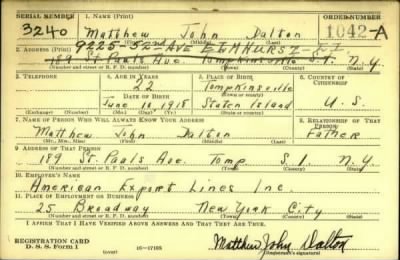 SERIAL NUMBER 1. NAME (Print) ORDER NUMBER
3240 Matthew John Dalton 1042-A
(First) (Middle) (Last)
9225-52nd-AVE ELMHURST-L.I.
2. ADDRESS (Print)
189 St. Pauls Ave. Tompkinsville S.I. N.Y.
(Number and street or R. F. D. number) (Town) (County) (State)
3. TELEPHONE 4. AGE IN YEARS 5. PLACE OF BIRTH 6. COUNTRY OF CITIZENSHIP
22 Tompkinsville
DATE OF BIRTH (Town or county)
June 10, 1918 Staten Island U.S.
(Exchange) (Number) (Mo.) (Day) (Yr.) (State or country)
7. NAME OF PERSON WHO WILL ALWAYS KNOW YOUR ADDRESS 8. RELATIONSHIP OF THAT PERSON
Matthew John Dalton Father
(Mr., Mrs., Miss) (First) (Middle) (Last)
9. ADDRESS OF THAT PERSON
189 St. Pauls Ave. Tomp. S.I. N.Y.
(Number and street or R. F. D. number) (Town) (County) (State)
10. EMPLOYER'S NAME
American Export Lines Inc.
11. PLACE OF EMPLOYMENT OR BUSINESS
25 Broadway New York City
(Number and street or R. F. D. number) (Town) (County) (State)
I AFFIRM THAT I HAVE VERIFIED ABOVE ANSWERS AND THAT THEY ARE TRUE.
REGISTRATION CARD
D. S. S. Form 1 16-17105 Matthew John Dalton
(Registrant's signature)